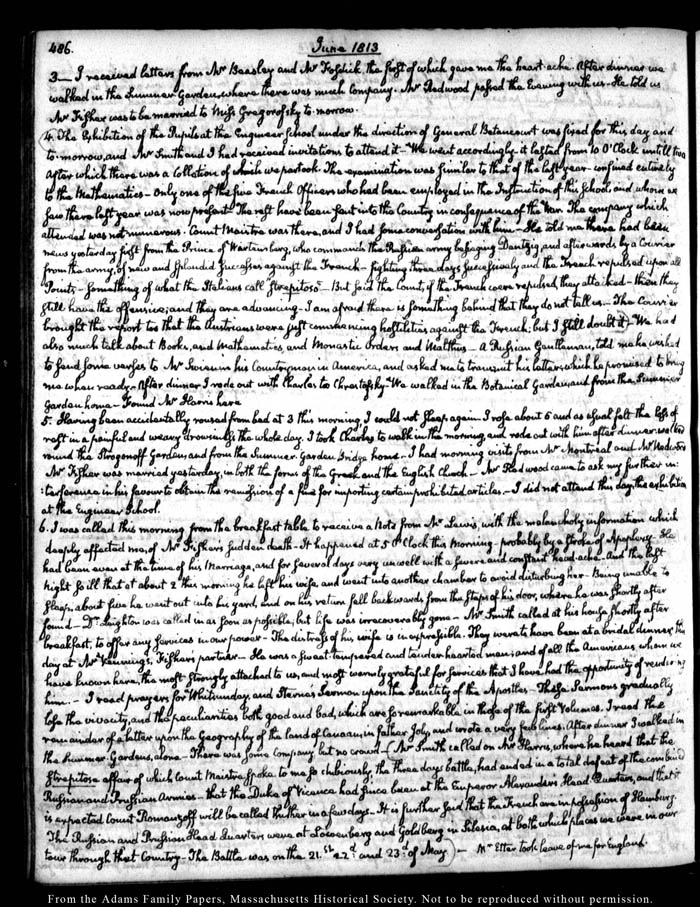 486.
June 1813
3— I received letters from Mr Beasley and Mr Fosdick, the first of which gave me the heart-ache. After dinner we
walked in the Summer Gardens, where there was much company. Mr Redwood passed the Evening with us. He told us
Mr Fisher was to be married to Miss Gregorofsky to-morrow.
4. The Exhibition of the Pupils at the Engineer School under the direction of General Betancourt was fixed for this day and
to-morrow, and Mr Smith and I had received invitations to attend it— We went accordingly. it lasted from 10 O'Clock until two
After which there was a Collation of which we partook. The examination was similar to that of the last year— confined entirely
to the Mathematics— Only one of the five French Officers who had been employed in the Instruction of this School, and whom we
saw there last year was now present. The rest have been sent into the Country in consequence of the War. The company which
attended was not numerous. Count Maistre was there, and I had some conversation with him— He told me there had been
news yesterday first from the Prince of Wurtemburg, who commands the Russian army besieging Dantzig, and afterwards by a Courier
from the army, of new and splendid successes against the French— fighting three days successively and the French repulsed upon all
Points— Something of what the Italians call Strepitoso— But said the Count, if the French were repulsed, they attacked— then they
still have the offensive; and they are advancing— I am afraid there is something behind that they do not tell us.— The Courier
brought the report too that the Austrians were just commencing hostilities against the French; but I still doubt it— We had
also much talk about Books, and Mathematics, and Monastic Orders, and Malthus— A Russian Gentleman, told me he wished
to send some verses to Mr Svenin his Countryman in America, and asked me to transmit his letter, which he promised to bring
me when ready.— After dinner I rode out with Charles to Chrestofsky— We walked in the Botanical Garden, and from the Summer
Garden home— Found Mr Harris here
5. Having been accidentally roused from bed at 3 this morning, I could not sleep again. I rose about 6 and as usual felt the loss of
rest in a painful and weary drowsiness the whole day. I took Charles to walk in the morning, and rode out with him after dinner. walked
round the Strogonoff Garden, and from the Summer Garden Bridge home— I had morning visits from Mr Montreal and Mr
Mr Fisher was married yesterday, in both the forms of the Greek and the English Church— Mr Redwood came to ask my further in-
:terference in his favour to obtain the remission of a fine for importing certain prohibited articles.— I did not attend this day, the exhibition
at the Engineer School.
6. I was called this morning from the breakfast table to receive a Note from Mr Lewis, with the melancholy information which
deeply affected me, of Mr Fisher's sudden death— It happened at 5 O'Clock this Morning— probably by a stroke of Apoplexy. He
had been even at the time of his Marriage, and for several days very unwell with a severe and constant head-ache. And the last
Night so ill that at about 2 this morning he left his wife, and went into another chamber to avoid disturbing her— Being unable to
sleep, about five he went out into his yard, and on his return fell backwards from the steps of his door, where he was shortly after
found— Dr Leighton was called in as soon as possible, but life was irrecoverably gone— Mr Smith called at his house shortly after
breakfast, to offer any services in our power— The distress of his wife is inexpressible. They were to have been at a bridal dinner, this
day at Mr Venning's, Fisher's partner— He was a sweet-tempered and tender hearted man; and of all the Americans whom we
have known here, the most strongly attached to us, and most warmly grateful for services that I have had the opportunity of rendering
him.— I read prayers for Whitsunday, and Sterne's Sermon upon the Sanctity of the Apostles— These Sermons gradually
lose the vivacity, and the peculiarities both good and bad, which are so remarkable in those of the first Volumes. I read the
remainder of a letter upon the Geography of the land of Canaan, in Father Joly, and wrote a very few lines. After dinner I walked in
the Summer Gardens, alone— There was some company but no crowd— (Mr Smith called on Mr Harris, where he heard that the
Strepitoso affair of which Count Maistre spoke to me so dubiously; the three days battle, had ended in a total defeat of the combined
Russian and Prussian Armies— that the Duke of Vicenza had since been at the Emperor Alexander's Head Quarters, and that it
is expected Count Romanzoff will be called thither in a few days— It is further said that the French are in possession of Hamburg.
The Russian and Prussian Head Quarters were at Löwenberg and Goldberg in Silesia, at both which places we were in our
tour through that Country— The Battle was on the 21.st 22.d and 23.d of May)— Mr Etter took leave of me for England.
From the Adams Family Papers, Massachusetts Historical Society. Not to be reproduced without permission.